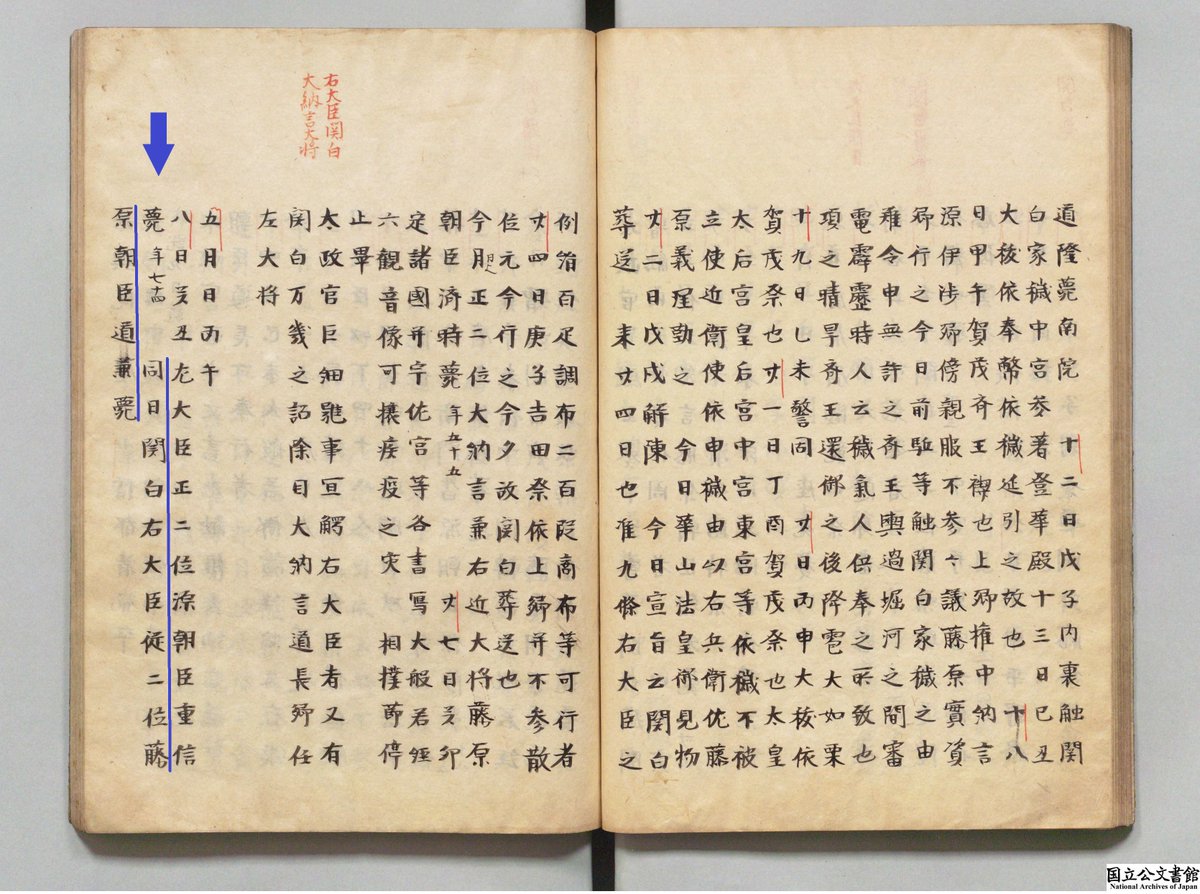 道隆薨南院 十二日戊子内裏触関
白家穢中宮参著登華殿十三日己丑
大祓依奉幣依穢延引之故也 十八
日甲午賀茂斉王禊也上卿権中納言
源伊渉卿傍親服不参々議藤原實資
卿行之今日前駈等触関白家穢之由
雖令申無許之斉王輿過堀河之間
電霹靂時人云穢氣人供奉之所致也
項之晴斉王還御之後降雹大如栗
十九日乙未警固 廿日丙申大祓依
賀茂祭也廿一日丁酉賀茂祭也太皇
太后宮皇后宮中宮東宮等依穢不被
立使近衛使依申穢由以右兵衛佐藤
原義理勤之今日華山法皇御見物
廿二日戊戌解陳今日宣旨云関白
葬送来廿四日也准九條右大臣之
右大臣関白
大納言大将
例給百疋調布二百段商布等可行者
廿四日庚子吉田祭依上卿并不参散
位元令行之今夕故関白葬送也
今月日欠正二位大納言兼右近大将藤原
朝臣済時薨年五十五 廿七日癸卯
定諸國并宇佐宮等各書写大般若経
六観音像可攘疫疫之灾 相撲節停
止畢
太政官巨細雖事宜觸右大臣者又有
関白万幾之詔除目大納言道長卿任
左大将
五月日丙午
八日癸丑左大臣正二位源朝臣重信
薨年七十四 同日関白右大臣従二位藤
原朝臣道兼薨
国立公文書館
National Archives of Japan